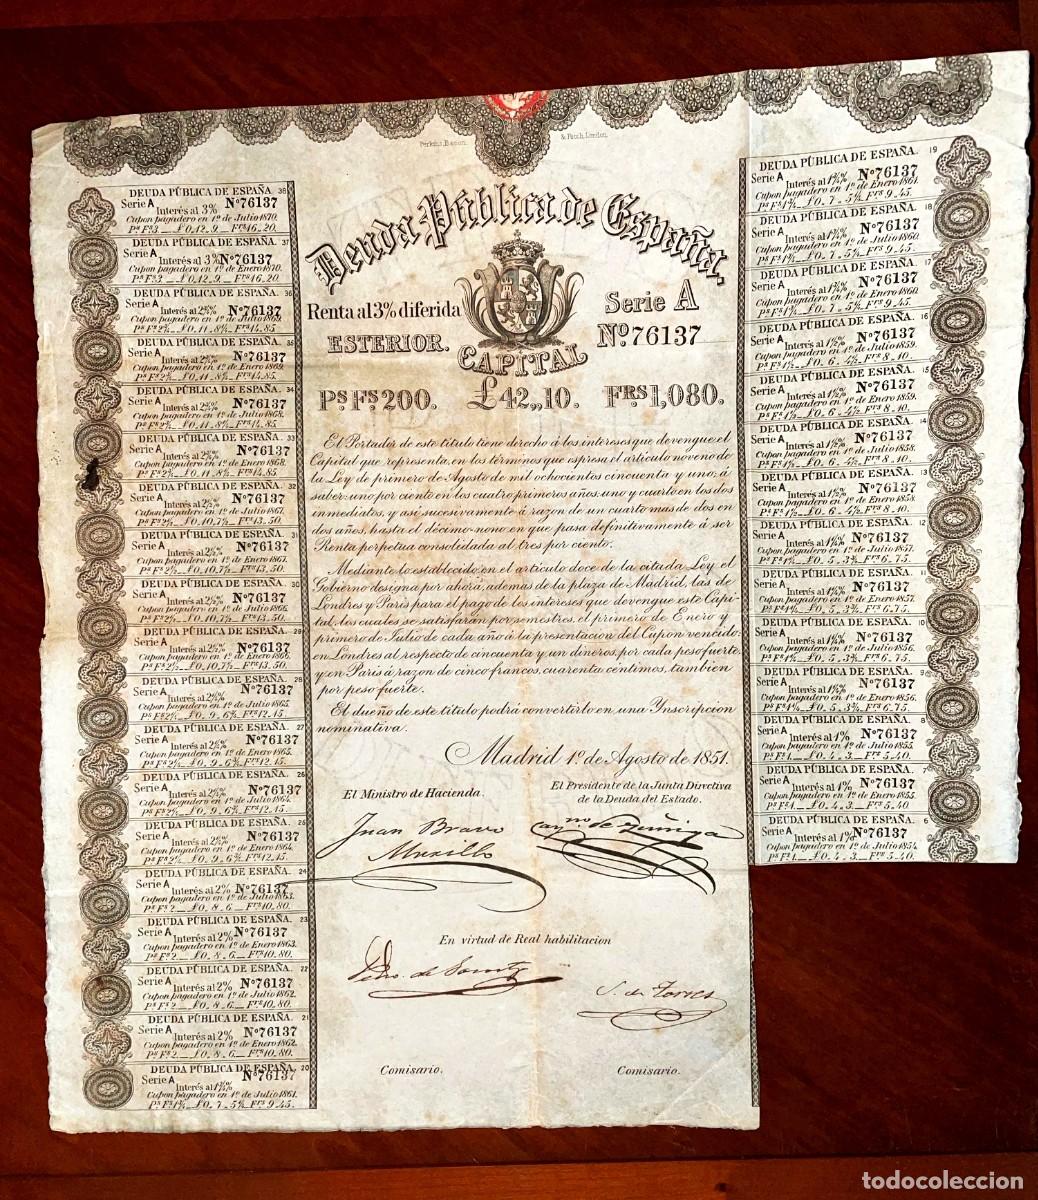 Perkins, Bacon & Petch, London.
Deuda Pública de España.
Renta al 3% diferida
ESTERIOR.
Serie A
Nº 76137
CAPITAL
Pˢ Fˢ 200. £42,,10. Fᴿˢ 1,080.
El Portador de este título tiene derecho á los intereses que devengue el
Capital que representa, en los términos que espresa el artículo noveno de
la Ley de primero de Agosto de mil ochocientos cincuenta y uno: á
saber: uno por ciento en los cuatro primeros años: uno y cuarto en los dos
inmediatos, y así sucesivamente á razon de un cuarto mas de dos en
dos años, hasta el décimo-nono en que pasa definitivamente á ser
Renta perpetua consolidada al tres por ciento.
Mediante lo establecido en el artículo doce de la citada Ley, el
Gobierno designa por ahora, ademas de la plaza de Madrid, las de
Londres y Paris para el pago de los intereses que devengue este Capi-
tal, los cuales se satisfarán por semestres, el primero de Enero y
primero de Julio de cada año á la presentacion del Cupon vencido:
en Londres al respecto de cincuenta y un dineros, por cada peso fuerte.
y en Paris á razon de cinco francos, cuarenta céntimos, tambien
por peso fuerte.
El dueño de este título podrá convertirlo en una Inscripcion
nominativa.
Madrid 1º de Agosto de 1851.
El Ministro de Hacienda.
El Presidente de la Junta Directiva
de la Deuda del Estado.
Juan Bravo
Murillo
Cayno de Zúñiga
En virtud de Real habilitacion
S. de Torres
Comisario.
Comisario.
DEUDA PÚBLICA DE ESPAÑA. 38
Serie A Nº 76137
Interés al 3%
Cupon pagadero en 1º de Julio 1870.
Pˢ Fˢ 3 _ £0,,12,,9 _ Fʳˢ 16,,20.
DEUDA PÚBLICA DE ESPAÑA. 37
Serie A Nº 76137
Interés al 3%
Cupon pagadero en 1º de Enero 1870.
Pˢ Fˢ 3 _ £0,,12,,9 _ Fʳˢ 16,,20.
DEUDA PÚBLICA DE ESPAÑA. 36
Serie A Nº 76137
Interés al 2¾%
Cupon pagadero en 1º de Julio 1869.
Pˢ Fˢ 2¾ _ £0,,11,,8¼ _ Fʳˢ 14,,85.
DEUDA PÚBLICA DE ESPAÑA. 35
Serie A Nº 76137
Interés al 2¾%
Cupon pagadero en 1º de Enero 1869.
Pˢ Fˢ 2¾ _ £0,,11,,8¼ _ Fʳˢ 14,,85.
DEUDA PÚBLICA DE ESPAÑA. 34
Serie A Nº 76137
Interés al 2¾%
Cupon pagadero en 1º de Julio 1868.
Pˢ Fˢ 2¾ _ £0,,11,,8¼ _ Fʳˢ 14,,85.
DEUDA PÚBLICA DE ESPAÑA. 33
Serie A Nº 76137
Interés al 2¾%
Cupon pagadero en 1º de Enero 1868.
Pˢ Fˢ 2¾ _ £0,,11,,8¼ _ Fʳˢ 14,,85.
DEUDA PÚBLICA DE ESPAÑA. 32
Serie A Nº 76137
Interés al 2½%
Cupon pagadero en 1º de Julio 1867.
Pˢ Fˢ 2½ _ £0,,10,,7½ _ Fʳˢ 13,,50.
DEUDA PÚBLICA DE ESPAÑA. 31
Serie A Nº 76137
Interés al 2½%
Cupon pagadero en 1º de Enero 1867.
Pˢ Fˢ 2½ _ £0,,10,,7½ _ Fʳˢ 13,,50.
DEUDA PÚBLICA DE ESPAÑA. 30
Serie A Nº 76137
Interés al 2½%
Cupon pagadero en 1º de Julio 1866.
Pˢ Fˢ 2½ _ £0,,10,,7½ _ Fʳˢ 13,,50.
DEUDA PÚBLICA DE ESPAÑA. 29
Serie A Nº 76137
Interés al 2½%
Cupon pagadero en 1º de Enero 1866.
Pˢ Fˢ 2½ _ £0,,10,,7½ _ Fʳˢ 13,,50.
DEUDA PÚBLICA DE ESPAÑA. 28
Serie A Nº 76137
Interés al 2¼%
Cupon pagadero en 1º de Julio 1865.
Pˢ Fˢ 2¼ _ £0,,9,,6¾ _ Fʳˢ 12,,15.
DEUDA PÚBLICA DE ESPAÑA. 27
Serie A Nº 76137
Interés al 2¼%
Cupon pagadero en 1º de Enero 1865.
Pˢ Fˢ 2¼ _ £0,,9,,6¾ _ Fʳˢ 12,,15.
DEUDA PÚBLICA DE ESPAÑA. 26
Serie A Nº 76137
Interés al 2¼%
Cupon pagadero en 1º de Julio 1864.
Pˢ Fˢ 2¼ _ £0,,9,,6¾ _ Fʳˢ 12,,15.
DEUDA PÚBLICA DE ESPAÑA. 25
Serie A Nº 76137
Interés al 2¼%
Cupon pagadero en 1º de Enero 1864.
Pˢ Fˢ 2¼ _ £0,,9,,6¾ _ Fʳˢ 12,,15.
DEUDA PÚBLICA DE ESPAÑA. 24
Serie A Nº 76137
Interés al 2%
Cupon pagadero en 1º de Julio 1863.
Pˢ Fˢ 2 _ £0,,8,,6 _ Fʳˢ 10,,80.
DEUDA PÚBLICA DE ESPAÑA. 23
Serie A Nº 76137
Interés al 2%
Cupon pagadero en 1º de Enero 1863.
Pˢ Fˢ 2 _ £0,,8,,6 _ Fʳˢ 10,,80.
DEUDA PÚBLICA DE ESPAÑA. 22
Serie A Nº 76137
Interés al 2%
Cupon pagadero en 1º de Julio 1862.
Pˢ Fˢ 2 _ £0,,8,,6 _ Fʳˢ 10,,80.
DEUDA PÚBLICA DE ESPAÑA. 21
Serie A Nº 76137
Interés al 2%
Cupon pagadero en 1º de Enero 1862.
Pˢ Fˢ 2 _ £0,,8,,6 _ Fʳˢ 10,,80.
DEUDA PÚBLICA DE ESPAÑA. 20
Serie A Nº 76137
Interés al 1¾%
Cupon pagadero en 1º de Julio 1861.
Pˢ Fˢ 1¾ _ £0,,7,,5¼ _ Fʳˢ 9,,45.
DEUDA PÚBLICA DE ESPAÑA. 19
Serie A Nº 76137
Interés al 1¾%
Cupon pagadero en 1º de Enero 1861.
Pˢ Fˢ 1¾ _ £0,,7,,5¼ _ Fʳˢ 9,,45.
DEUDA PÚBLICA DE ESPAÑA. 18
Serie A Nº 76137
Interés al 1¾%
Cupon pagadero en 1º de Julio 1860.
Pˢ Fˢ 1¾ _ £0,,7,,5¼ _ Fʳˢ 9,,45.
DEUDA PÚBLICA DE ESPAÑA. 17
Serie A Nº 76137
Interés al 1¾%
Cupon pagadero en 1º de Enero 1860.
Pˢ Fˢ 1¾ _ £0,,7,,5¼ _ Fʳˢ 9,,45.
DEUDA PÚBLICA DE ESPAÑA. 16
Serie A Nº 76137
Interés al 1½%
Cupon pagadero en 1º de Julio 1859.
Pˢ Fˢ 1½ _ £0,,6,,4½ _ Fʳˢ 8,,10.
DEUDA PÚBLICA DE ESPAÑA. 15
Serie A Nº 76137
Interés al 1½%
Cupon pagadero en 1º de Enero 1859.
Pˢ Fˢ 1½ _ £0,,6,,4½ _ Fʳˢ 8,,10.
DEUDA PÚBLICA DE ESPAÑA. 14
Serie A Nº 76137
Interés al 1½%
Cupon pagadero en 1º de Julio 1858.
Pˢ Fˢ 1½ _ £0,,6,,4½ _ Fʳˢ 8,,10.
DEUDA PÚBLICA DE ESPAÑA. 13
Serie A Nº 76137
Interés al 1½%
Cupon pagadero en 1º de Enero 1858.
Pˢ Fˢ 1½ _ £0,,6,,4½ _ Fʳˢ 8,,10.
DEUDA PÚBLICA DE ESPAÑA. 12
Serie A Nº 76137
Interés al 1¼%
Cupon pagadero en 1º de Julio 1857.
Pˢ Fˢ 1¼ _ £0,,5,,3¾ _ Fʳˢ 6,,75.
DEUDA PÚBLICA DE ESPAÑA. 11
Serie A Nº 76137
Interés al 1¼%
Cupon pagadero en 1º de Enero 1857.
Pˢ Fˢ 1¼ _ £0,,5,,3¾ _ Fʳˢ 6,,75.
DEUDA PÚBLICA DE ESPAÑA. 10
Serie A Nº 76137
Interés al 1¼%
Cupon pagadero en 1º de Julio 1856.
Pˢ Fˢ 1¼ _ £0,,5,,3¾ _ Fʳˢ 6,,75.
DEUDA PÚBLICA DE ESPAÑA. 9
Serie A Nº 76137
Interés al 1¼%
Cupon pagadero en 1º de Enero 1856.
Pˢ Fˢ 1¼ _ £0,,5,,3¾ _ Fʳˢ 6,,75.
DEUDA PÚBLICA DE ESPAÑA. 8
Serie A Nº 76137
Interés al 1%
Cupon pagadero en 1º de Julio 1855.
Pˢ Fˢ 1 _ £0,,4,,3 _ Fʳˢ 5,,40.
DEUDA PÚBLICA DE ESPAÑA. 7
Serie A Nº 76137
Interés al 1%
Cupon pagadero en 1º de Enero 1855.
Pˢ Fˢ 1 _ £0,,4,,3 _ Fʳˢ 5,,40.
DEUDA PÚBLICA DE ESPAÑA. 6
Serie A Nº 76137
Interés al 1%
Cupon pagadero en 1º de Julio 1854.
Pˢ Fˢ 1 _ £0,,4,,3 _ Fʳˢ 5,,40.
todocoleccion